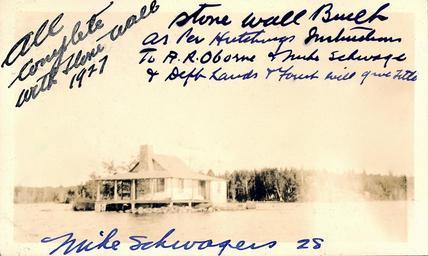 All
complete
with stone wall
1927
stone wall Built
as Per Hutchings Instructions
To A.R. Oborne & Mike Schwager
& Dept Lands & Forest will give title
Mike Schwagers 28